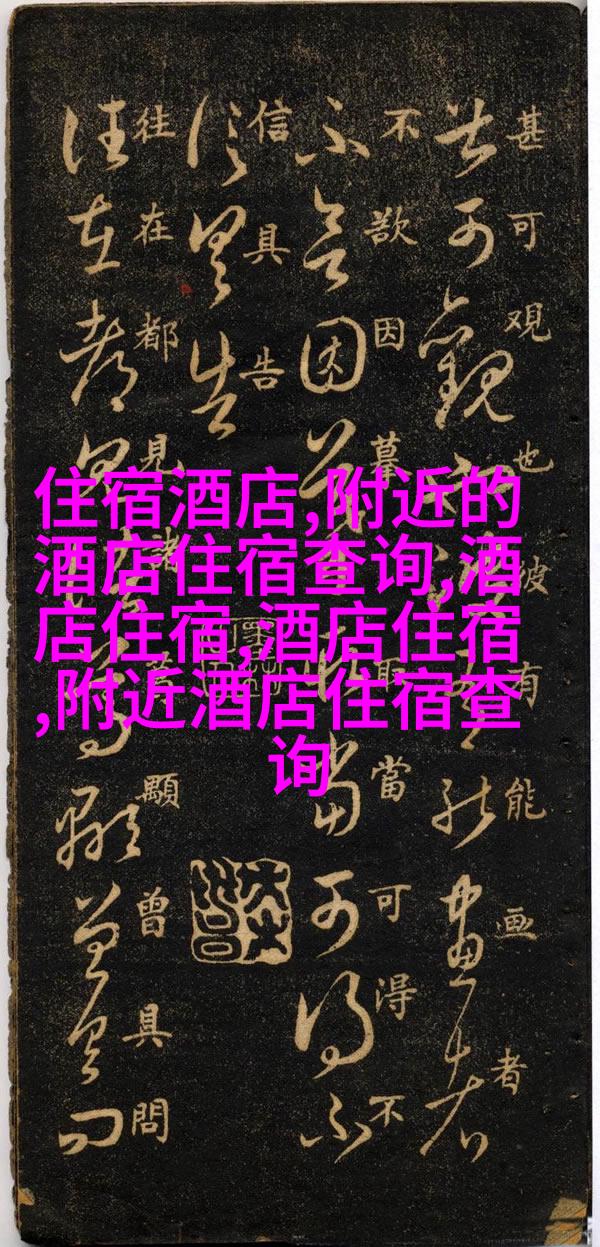 住宿酒店,附近的
酒店住宿查询,酒
店住宿,酒店住宿
,附近酒店住宿查
询
甚可观也彼有能画者
不欲因摹取當可得不
信具告
往在都見諸葛顯曾具問